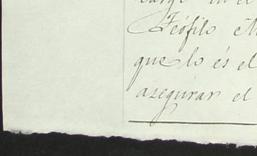 en el
Teófilo
que lo és el
asegurar el